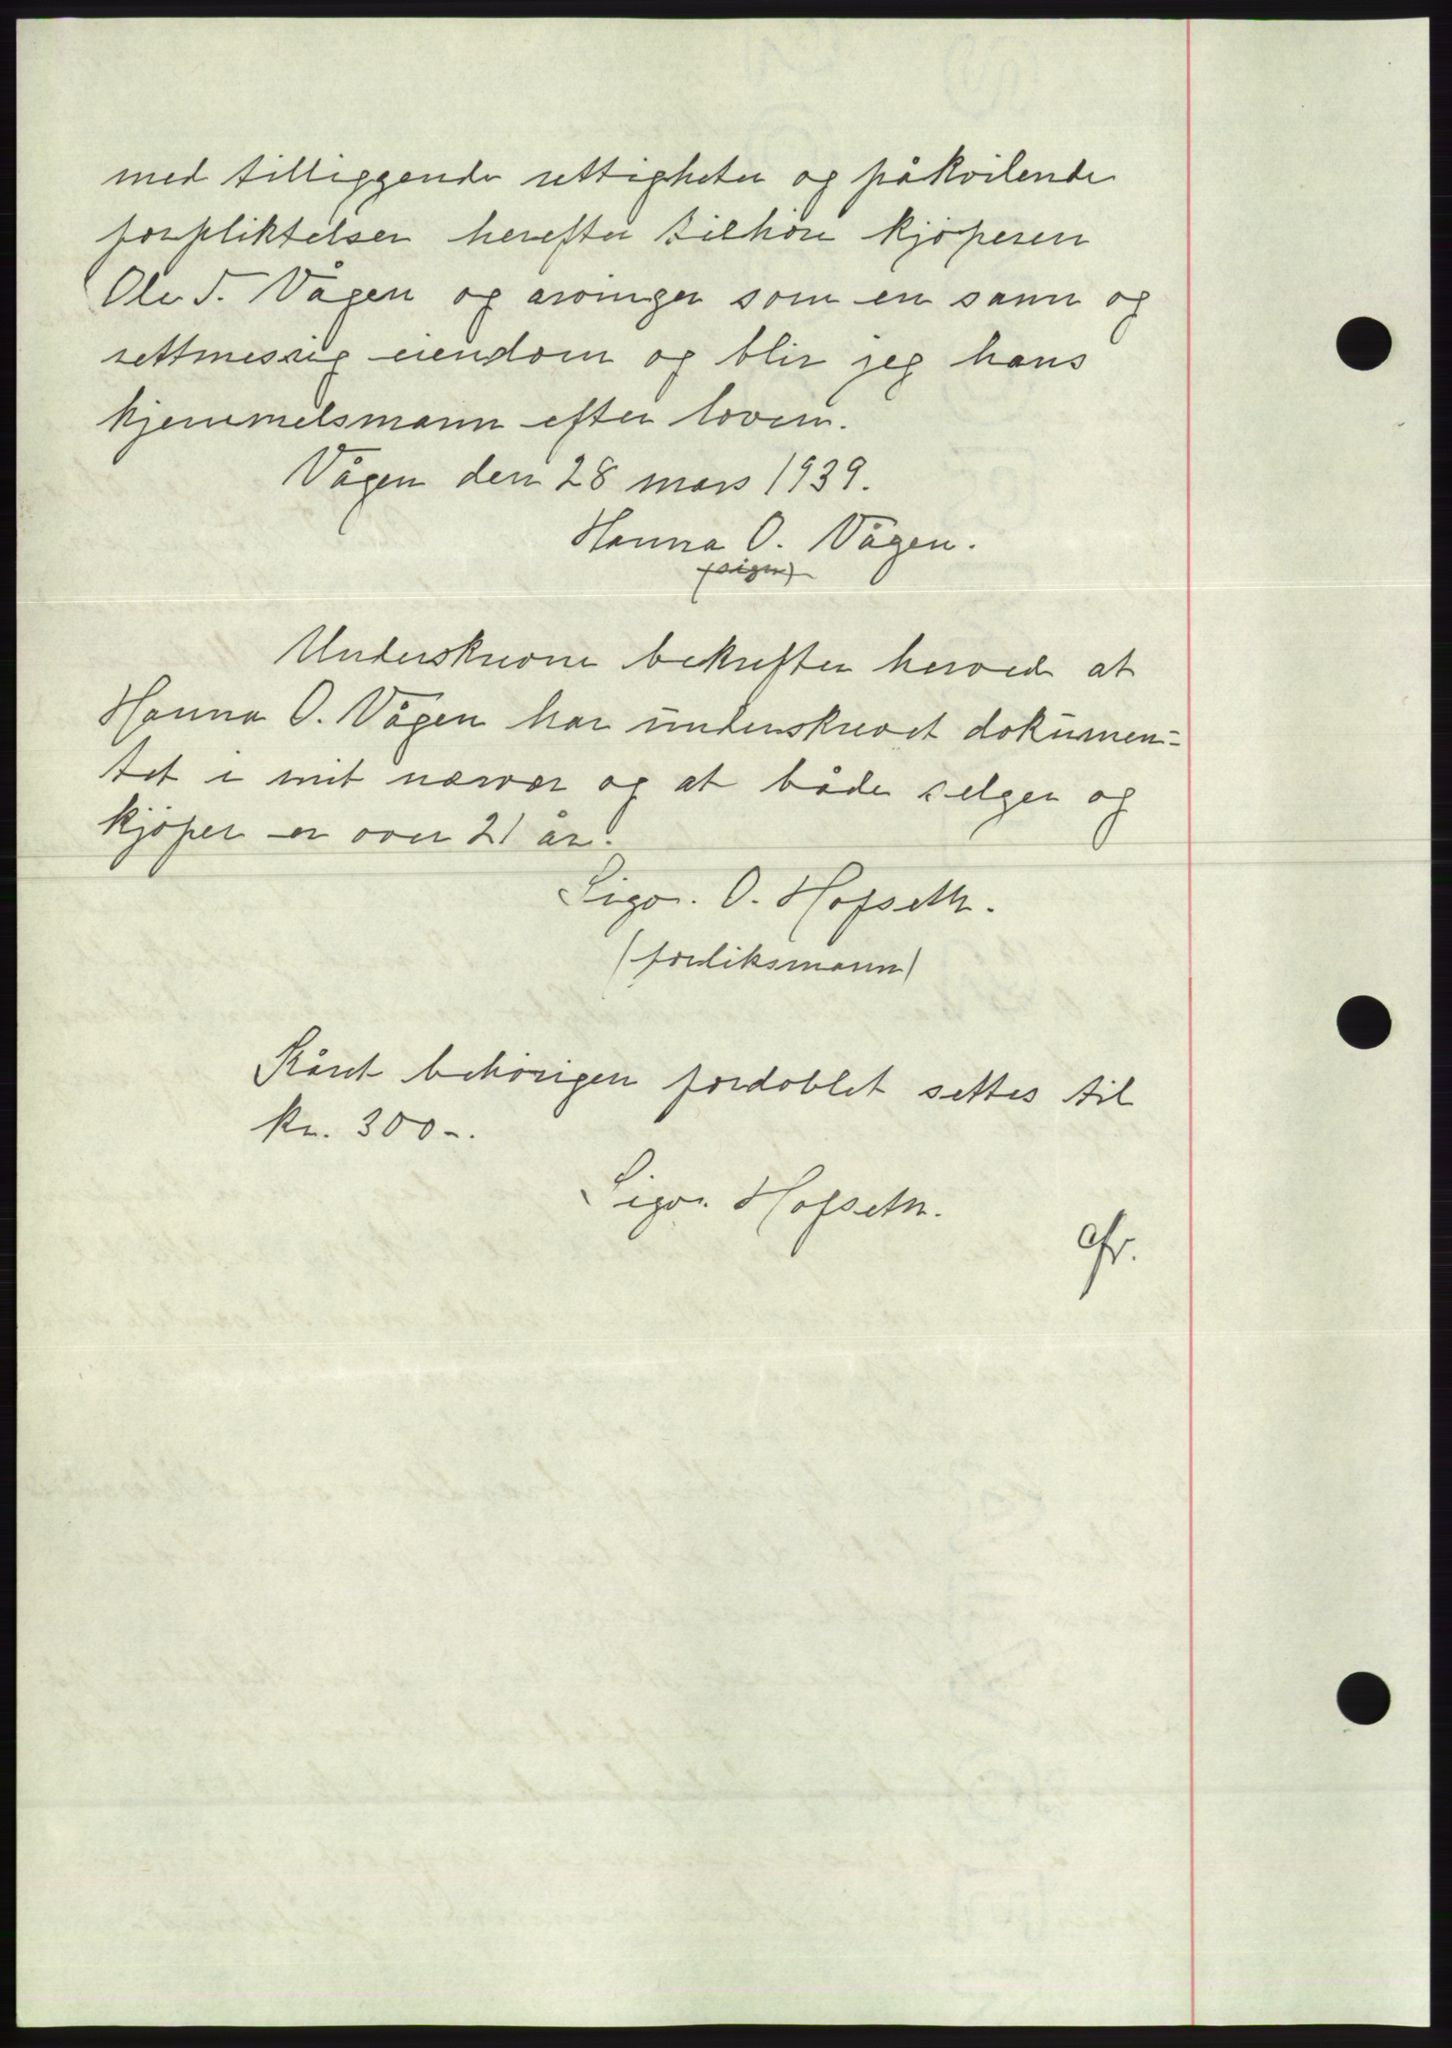 med tilliggende rettigheter og påkvilende
forpliktelser herefter tilhöre kjöperen
Ole T. Vågen og arvinger som en sann og
rettmessig eiendom og blir jeg hans
hjemmelsmann efter loven.
Vågen den 28 mars 1939.
Hanna O. Vågen.
(sign)
Underskrevne bekrefter herved at
Hanna O. Vågen har underskrevet dokumen-
tet i mit nærvær og at både selger og
kjöper er over 21 år.
Sigv. O. Hofseth.
(forliksmann)
Skåret behörigen fordoblet settes til
kr. 300-.
Sigv. Hofseth.